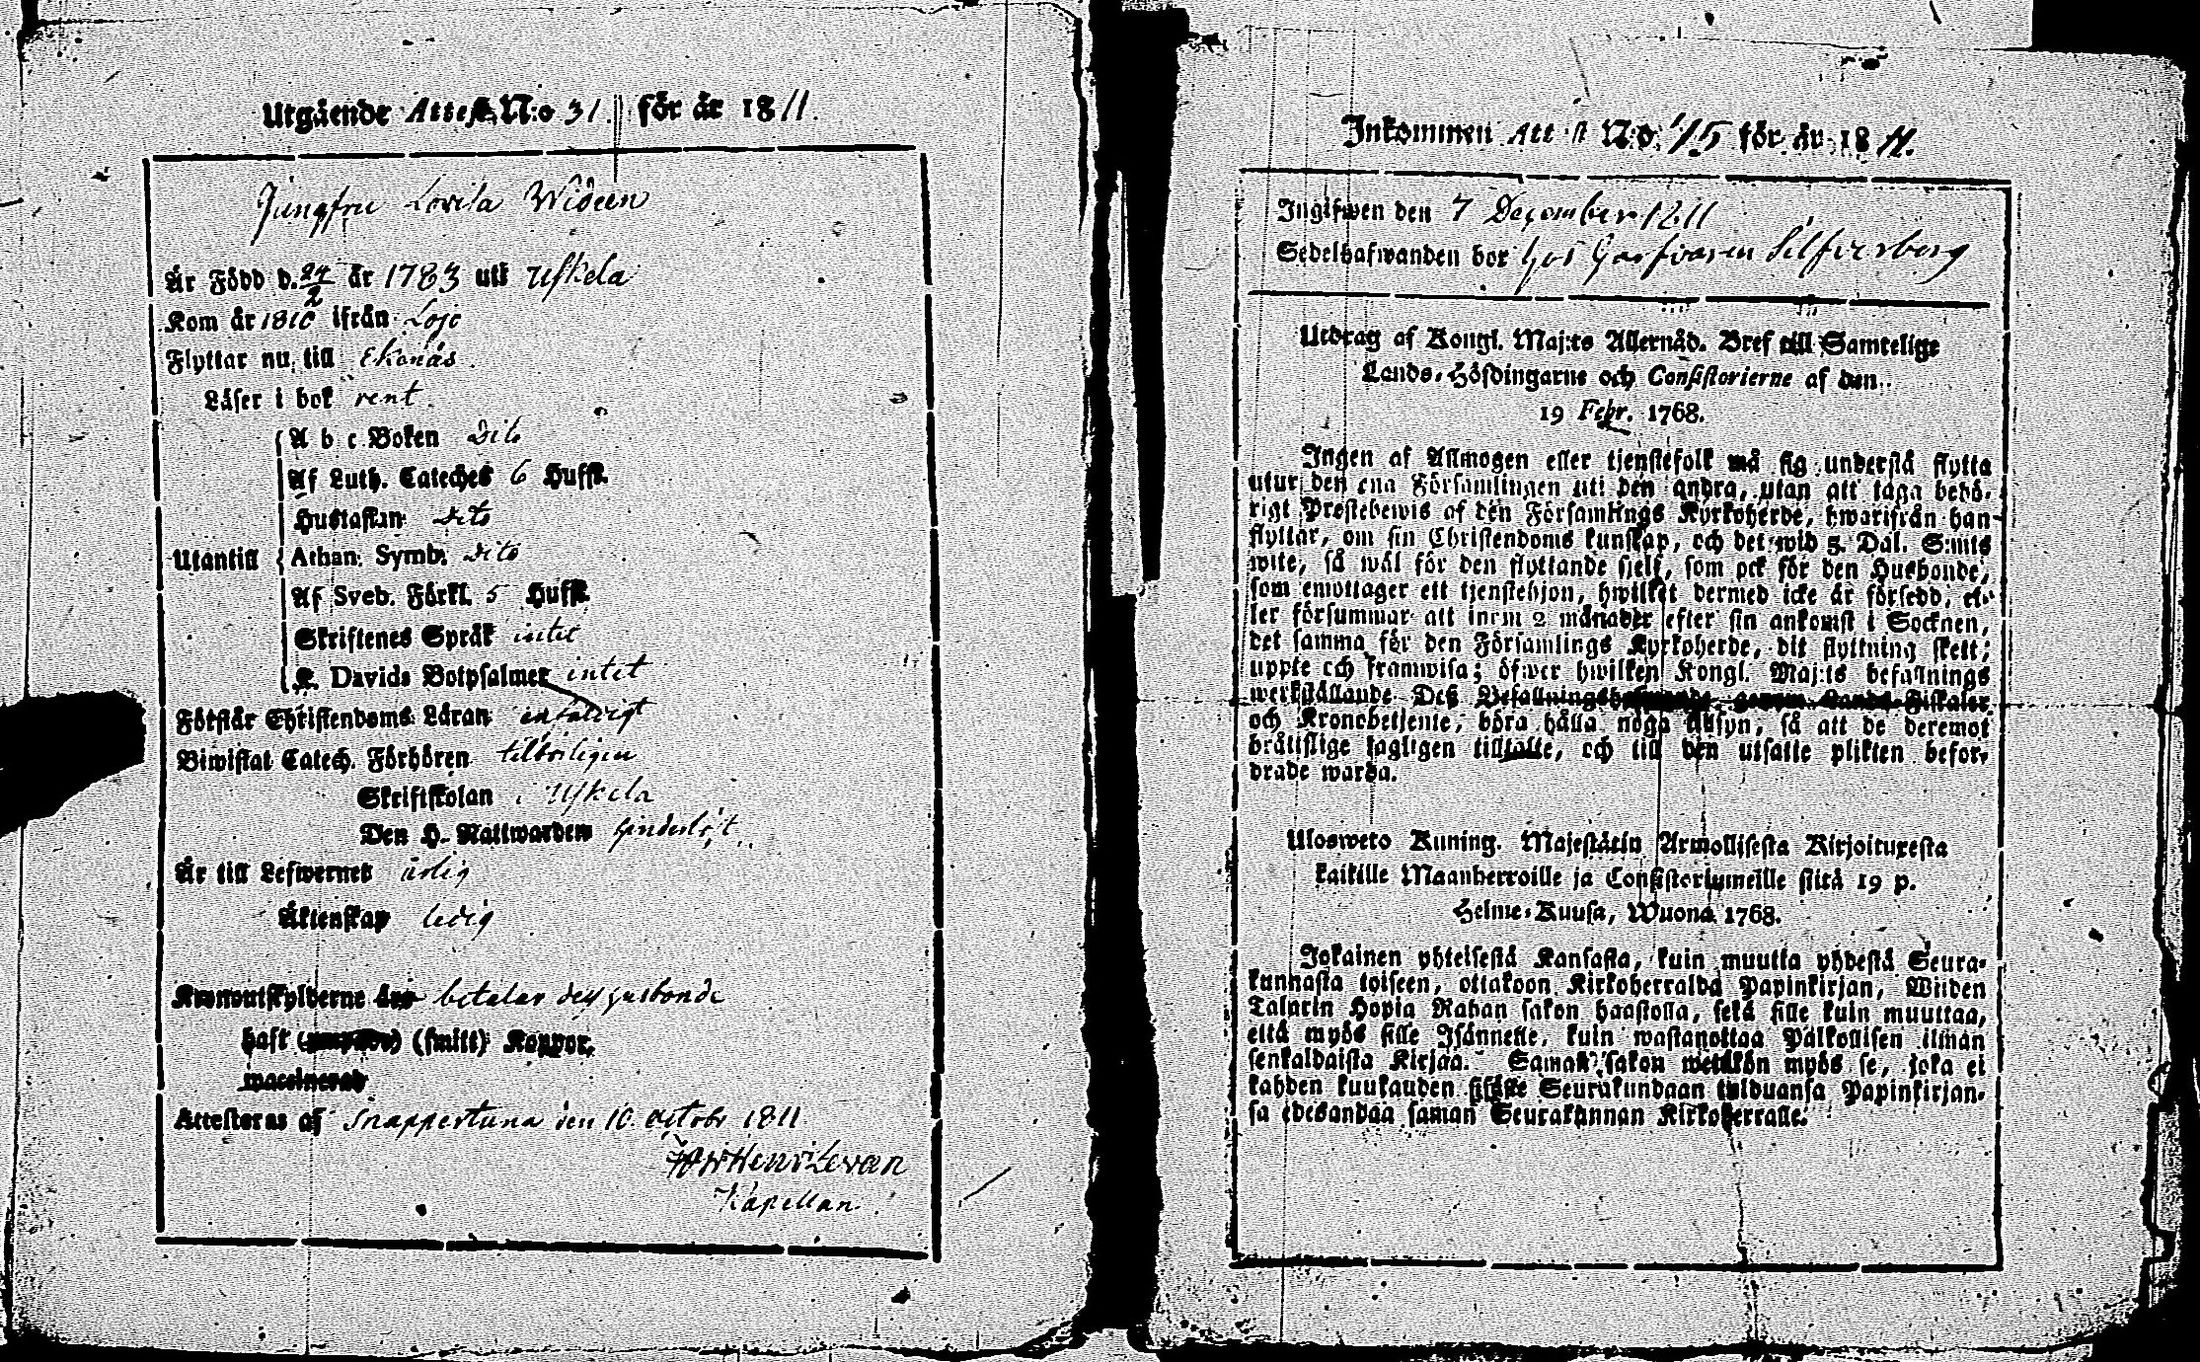 Utgående Attest N:o 31. för år 1811.
Jungfru Lovisa Wideen
Är Född d. 24/2 år 1783 uti Uskela
Kom år 1810 ifrån Lojo
Flyttar nu till Ekenäs.
Läser i bok rent.
A b c Boken Dito
Af Luth. Cateches 6 Hufst.
Hustaflan dito
Utantill Athan. Symb. dito
Af Sveb. Förkl. 5 Hufst.
Skriftenes Språk intet
K. Davids Botpsalmer intet
Förstår Christendoms Läran enfaldigt
Biwistat Catech. Förhören tilbörligen
Skriftskolan i Uskela
Den H. Nattwarden hinderlöst
Är till Lefwernet ärlig
Äktenskap ledig
Kronoutskylderne betalar dess husbonde
haft (smitt) Koppor,
vaccinerad
Attesteras af Snappertuna den 10. October 1811
Levan
Kapellan.
Inkommen Attest N:o. 75 för år 1811.
Ingifwen den 7 December 1811
Sedelhafwanden bor hos Garfvaren Silfverberg
Utdrag af Kongl. Maj:ts Allernåd. Bref till Samtelige
Lands-Höfdingarne och Consistorierne af den
19 Febr. 1768.
Ingen af Allmogen eller tjenstefolk må sig understå flytta
utur den ena Församlingen uti den andra, utan att taga behö-
rigt Prestebewis af den Församlings Kyrkoherde, hwarifrån han
flyttar, om sin Christendoms kunskap, och det wid 5. Dal. S:mts
wite, så wäl för den flyttande sielf, som ock för den Husbonde,
som emottager ett tjenstehjon, hwilket dermed icke är försedd, el-
ler försummar att inom 2 månader efter sin ankomst i Socknen,
det samma för den Församlings Kyrkoherde, dit flyttning skett,
uppte och framwisa; öfwer hwilken Kongl. Maj:ts befallnings
werkställande Deß Befallningshafwande, genom Lands-Fiskaler
och Kronobetjente, böra hålla noga tilsyn, så att de deremot
bråttslige lagligen tilltalte, och till den utsatte plikten befor-
drade warda.
Ulosweto Kuning. Majestätin Armollisesta Kirjoituxesta
kaikille Maanherroille ja Consistoriumeille siitä 19 p.
Helme-Kuusa, Wuona 1768.
Jokainen yhteisestä Kansasta, kuin muutta yhdestä Seura-
kunnasta toiseen, ottakoon Kirkoherralda Papinkirjan, Wiiden
Talarin Hopia Rahan sakon haastolla, sekä sille kuin muuttaa,
että myös sille Isännelle, kuin wastanottaa Palkollisen ilman
senkaldaista Kirjaa. Saman sakon wetäkön myös se, joka ei
kahden kuukauden sisälle Seurakundaan tulduansa Papinkirjan-
sa edesandaa saman Seurakunnan Kirkoherralle.